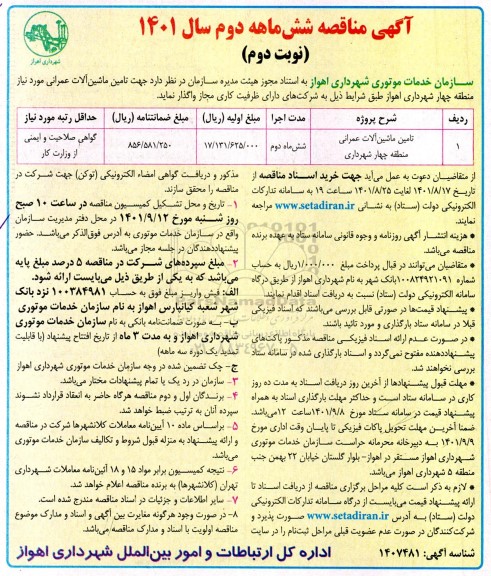 آگهی مناقصه شش‌ماهه دوم سال ۱۴۰۱
(نوبت دوم)
شهرداری اهواز
سازمان خدمات موتوری شهرداری اهواز به استناد مجوز هیئت مدیره سازمان در نظر دارد جهت تامین ماشین‌آلات عمرانی مورد نیاز
منطقه چهار شهرداری اهواز طبق شرایط ذیل به شرکت‌های دارای ظرفیت کاری مجاز واگذار نماید.
ردیف شرح پروژه مدت اجرا مبلغ اولیه (ریال) مبلغ ضمانتنامه (ریال) حداقل رتبه مورد نیاز
۱ تامین ماشین‌آلات عمرانی منطقه چهار شهرداری شش‌ماه دوم ۱۷/۱۳۱/۶۲۵/۰۰۰ ۸۵۶/۵۸۱/۲۵۰ گواهی صلاحیت و ایمنی از وزارت کار
از متقاضیان دعوت به عمل می‌آید جهت خرید اسناد مناقصه از
تاریخ ۱۴۰۱/۸/۱۷ لغایت ۱۴۰۱/۸/۲۵ ساعت ۱۹ به سامانه تدارکات
الکترونیکی دولت (ستاد) به نشانی www.setadiran.ir مراجعه
نمایند.
● هزینه انتشار آگهی روزنامه و وجوه قانونی سامانه ستاد به عهده برنده
مناقصه می‌باشد.
● متقاضیان می‌توانند در قبال پرداخت مبلغ ۱/۰۰۰/۰۰۰ریال به حساب
شماره ۱۰۰۸۲۴۹۲۱۰۹۱بانک شهر به نام شهرداری اهواز از طریق درگاه
سامانه الکترونیکی دولت (ستاد) نسبت به دریافت اسناد اقدام نمایند.
● پیشنهاد قیمت‌ها در صورتی قابل بررسی می‌باشند که اسناد فیزیکی
قبلا در سامانه ستاد بارگذاری و مورد تائید باشند.
● در صورت عدم ارائه اسناد فیزیکی مناقصه مذکور پاکت‌های
پیشنهاددهنده مفتوح نمی‌گردد و اسناد بارگذاری شده در سامانه ستاد
بررسی نخواهند شد.
● مهلت قبول پیشنهادها از آخرین روز دریافت اسناد به مدت ده روز
کاری در سامانه ستاد است و حداکثر مهلت بارگذاری اسناد به همراه
پیشنهاد قیمت در سامانه ستاد مورخ ۱۴۰۱/۹/۸ ساعت ۱۲می‌باشد.
ضمنا آخرین مهلت تحویل پاکات فیزیکی تا پایان وقت اداری مورخ
۱۴۰۱/۹/۹ به دبیرخانه محرمانه حراست سازمان خدمات موتوری
شهرداری اهواز مستقر در اهواز- بلوار گلستان خیابان ۲۲ بهمن جنب
منطقه ۵ شهرداری اهواز می‌باشد.
● لازم به ذکر است کلیه مراحل برگزاری مناقصه از دریافت اسناد تا
ارائه پیشنهاد قیمت می‌بایست از درگاه سامانه تدارکات الکترونیکی
دولت (ستاد) به آدرس www.setadiran.ir صورت پذیرد و
شرکت‌کنندگان در صورت عدم عضویت قبلی مراحل ثبت‌نام را در سایت
مذکور و دریافت گواهی امضاء الکترونیکی (توکن) جهت شرکت در
مناقصه را محقق سازند.
۱- تاریخ و محل تشکیل کمیسیون مناقصه در ساعت ۱۰ صبح
روز شنبه مورخ ۱۴۰۱/۹/۱۲ در محل دفتر مدیریت سازمان
واقع در سازمان خدمات موتوری به آدرس فوق‌الذکر می‌باشد. حضور
پیشنهاددهندگان در جلسه مجاز می‌باشد.
۲- مبلغ سپرده‌های شرکت در مناقصه ۵ درصد مبلغ پایه
می‌باشد که به یکی از طریق ذیل می‌بایست ارائه شود.
الف: فیش واریز مبلغ فوق به حساب ۱۰۰۳۸۴۹۸۱ نزد بانک
شهر شعبه کیانپارس اهواز به نام سازمان خدمات موتوری
ب- به صورت ضمانت‌نامه بانکی به نام سازمان خدمات موتوری
شهرداری اهواز و به مدت ۳ ماه از تاریخ افتتاح پیشنهاد (با قابلیت
تمدید یک دوره سه ماهه)
ج- چک تضمین شده در وجه سازمان خدمات موتوری شهرداری اهواز
۳- سازمان در رد یک یا تمام پیشنهادات مختار می‌باشد.
۴- برندگان اول و دوم مناقصه هرگاه حاضر به انعقاد قرارداد نشوند
سپرده آنان به ترتیب ضبط خواهد شد.
۵- براساس ماده ۱۰ آیین‌نامه معاملات کلانشهرها شرکت در مناقصه
و ارائه پیشنهاد به منزله قبول شروط و تکالیف سازمان خدمات موتوری
می‌باشد.
۶- نتیجه کمیسیون برابر مواد ۱۵ و ۱۸ آئین‌نامه معاملات شهرداری
تهران (کلانشهرها) به برنده مناقصه اعلام خواهد شد.
۷- سایر اطلاعات و جزئیات در اسناد مناقصه مندرج شده است.
۸- در صورت وجود هرگونه مغایرت بین آگهی و اسناد و مدارک موضوع
مناقصه اولویت با اسناد و مدارک مناقصه می‌باشد.
شناسه آگهی: ۱۴۰۷۴۸۱
اداره کل ارتباطات و امور بین‌الملل شهرداری اهواز